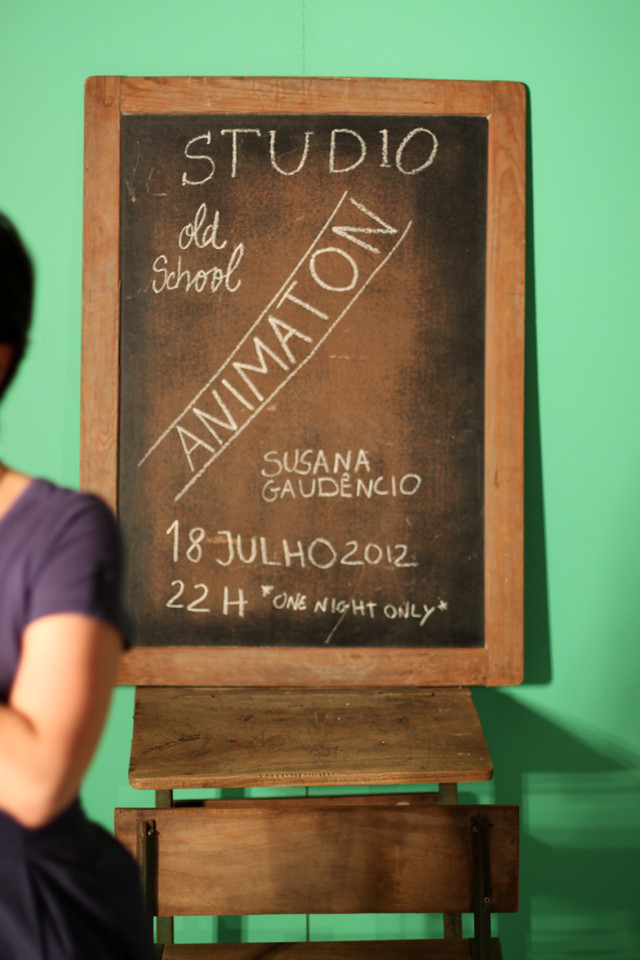 STUDIO
old
School
ANIMATON
SUSANA
GAUDÊNCIO
18 JULHO 2012
22 H *ONE NIGHT ONLY*